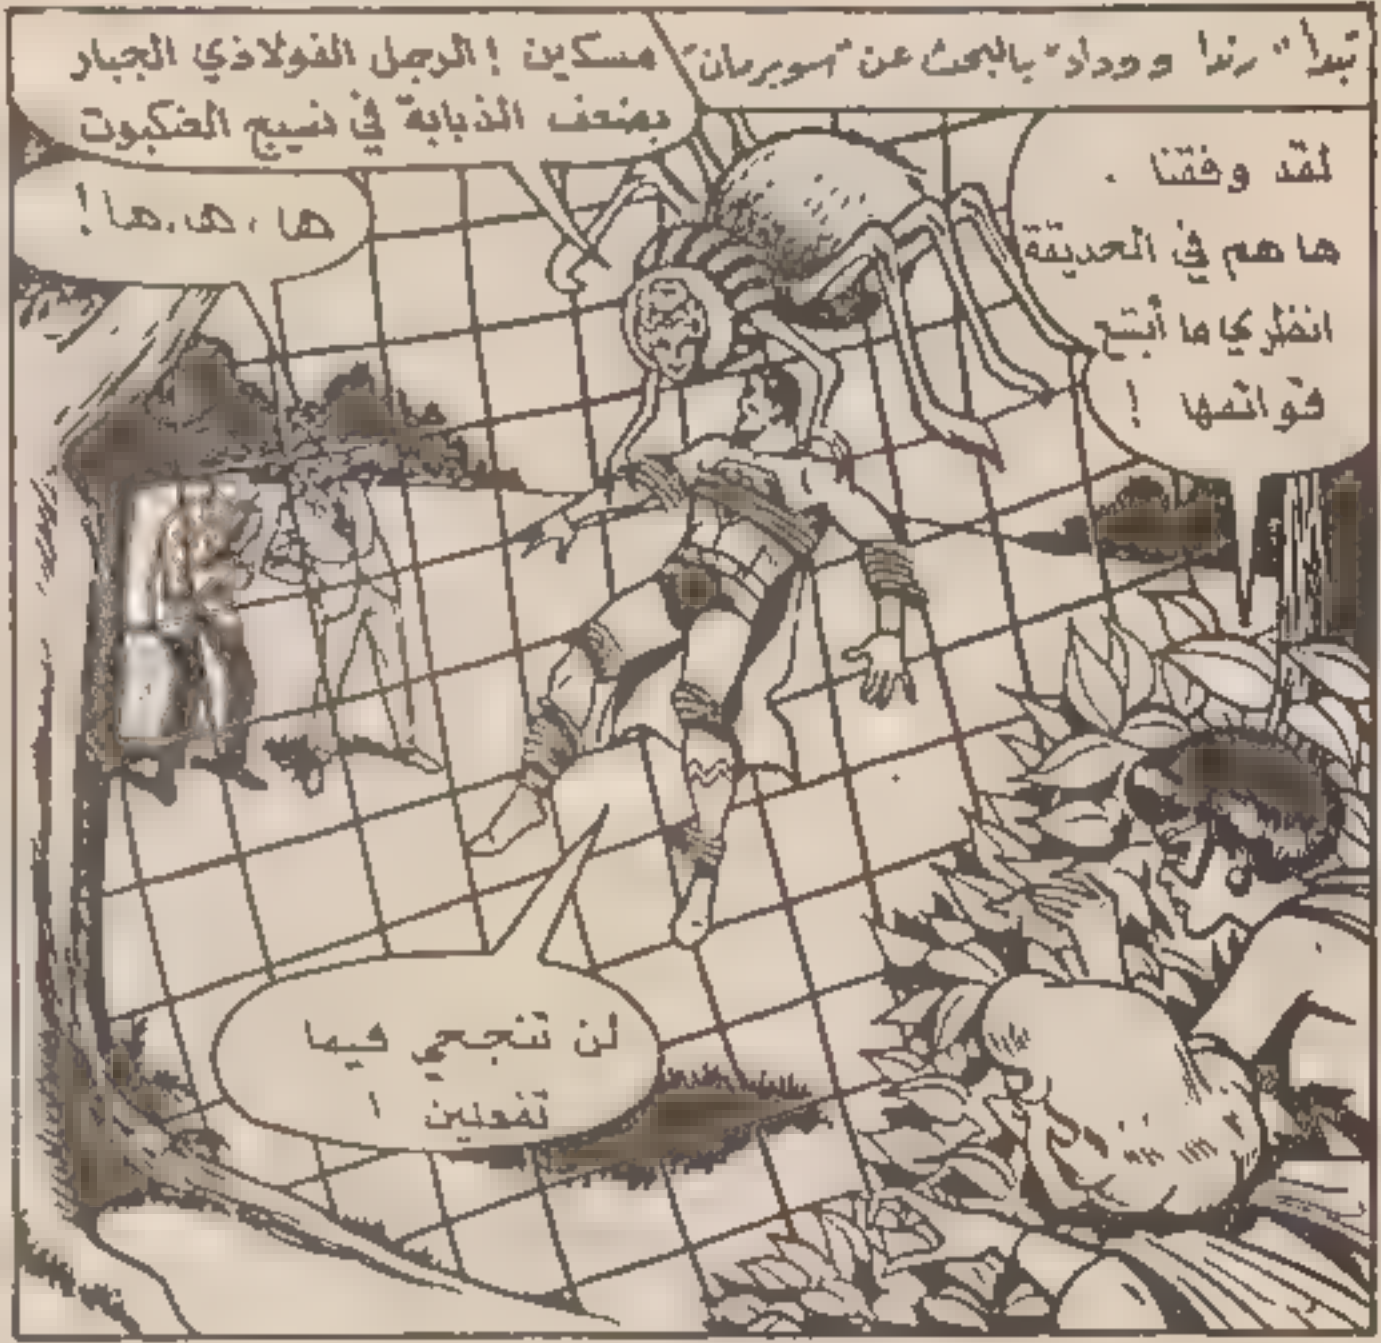 تبدأ "رندا ووداد" بالبحث عن "سوبرمان"
لقد وفقنا .
ها هم في الحديقة
انظري ما أبشع
قوائمها !
مسكين ! الرجل الفولاذي الجبار
بضعف الذبابة في نسيج العنكبوت
ها ، ها ، ها !
لن تنجحي فيما
تفعلين !